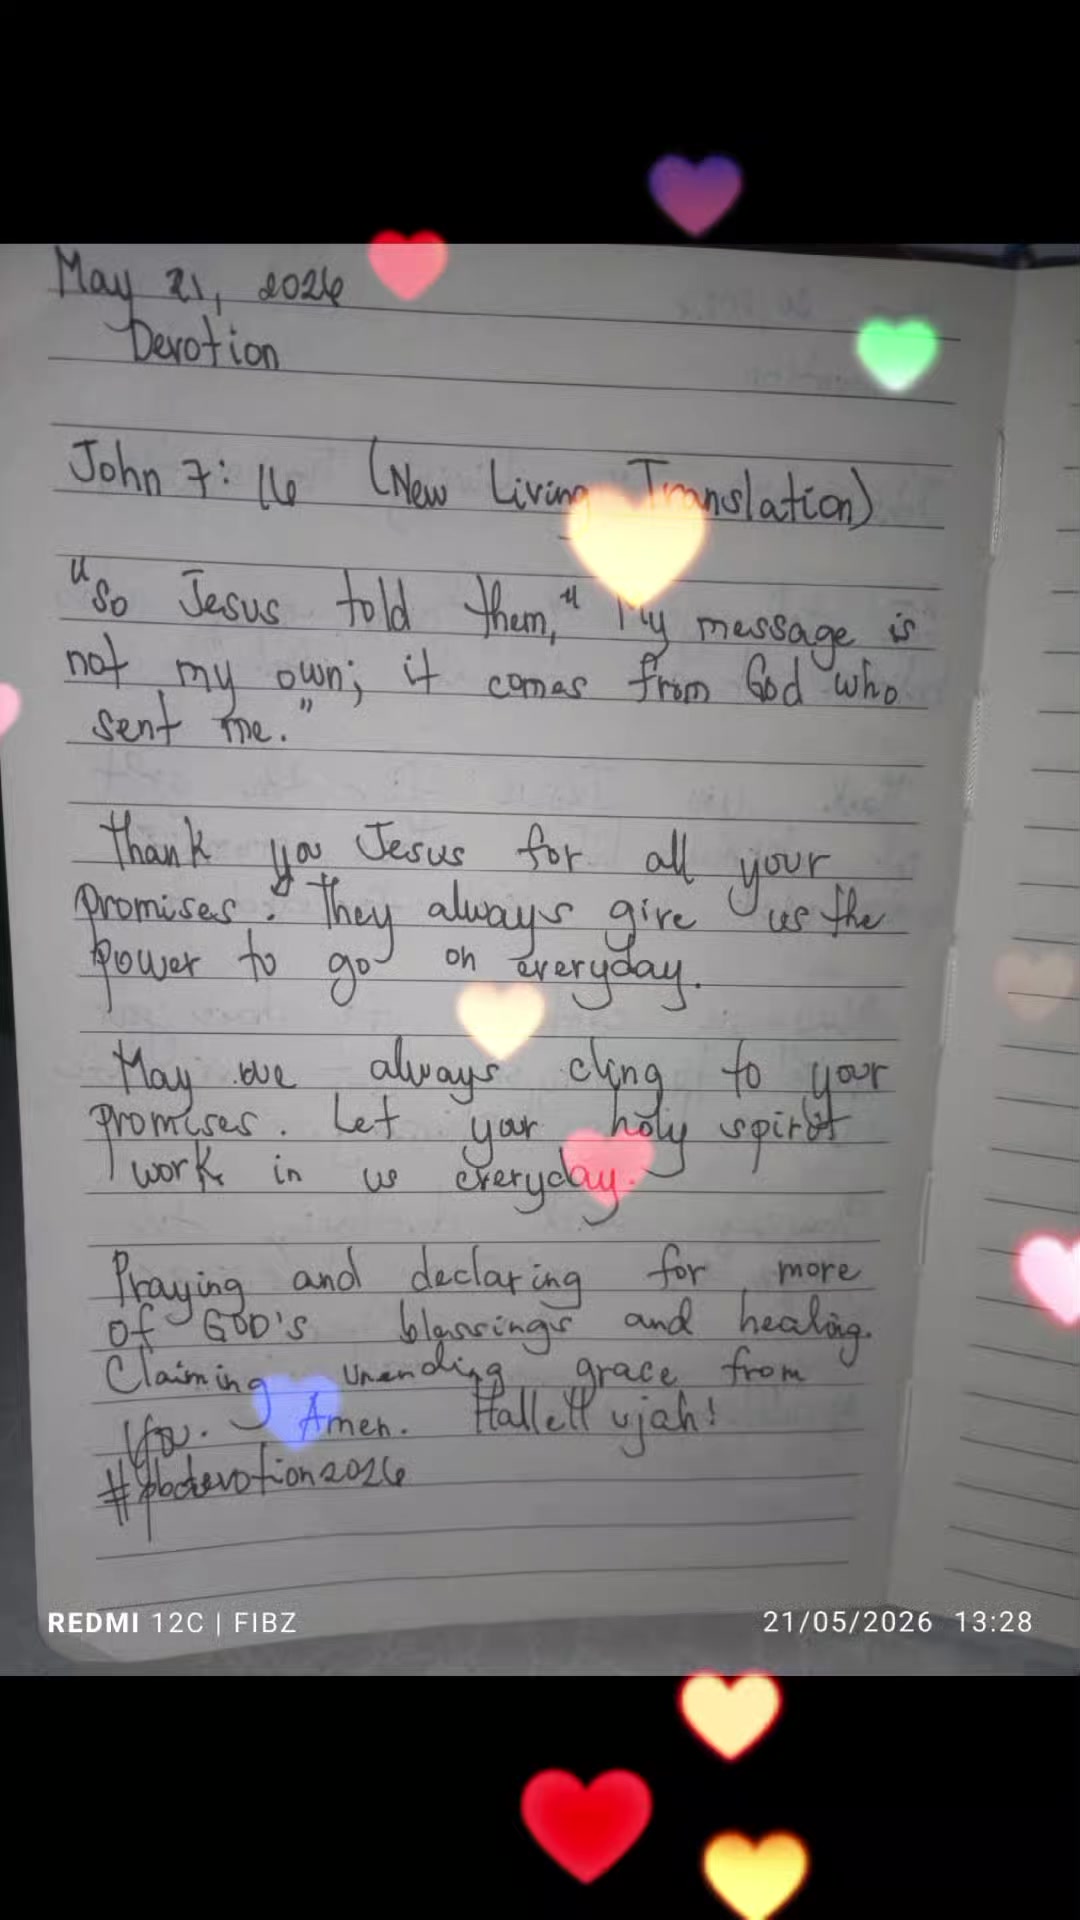 May 21, 2026
Devotion
John 7: 16 (New Living Translation)
"So Jesus told them," My message is
not my own; it comes from God who
sent me."
Thank you Jesus for all your
promises. They always give us the
power to go on everyday.
May we always cling to your
promises. Let your holy spirit
work in us everyday.
Praying and declaring for more
of GOD'S blessings and healing.
Claiming unending grace from
You. Amen. Hallellujah!
#pbcdevotion2026
REDMI 12C | FIBZ
21/05/2026 13:28